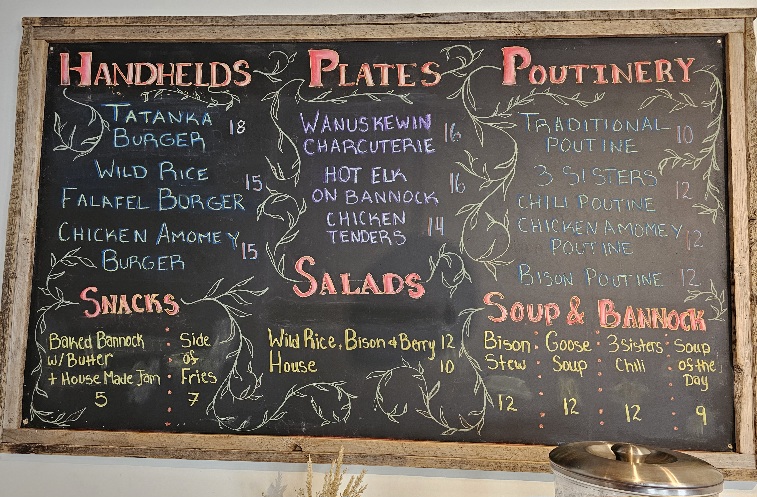 HANDHELDS
TATANKA 18
BURGER
WILD RICE 15
FALAFEL BORGER
CHICKEN AMOMEY 15
BURGER
PLATES
WANUSKEWIN 16
CHARCUTERIE
HOT ELK 16
ON BANNOCK
CHICKEN 14
TENDERS
POUTINERY
TRADITIONAL 10
POUTINE
3 SISTERS 12
CHILI POUTINE
CHICKEN AMOMEY 12
POUTINE
BISON POUTINE 12
SNACKS
Baked Bannock
w/Butter
+ House Made Jam
5
Side
of
Fries
7
SALADS
Wild Rice, Bison & Berry 12
House 10
SOUP & BANNOCK
Bison
Stew
12
Goose
Soup
12
3 sisters
Chili
12
Soup
of the
Day
9